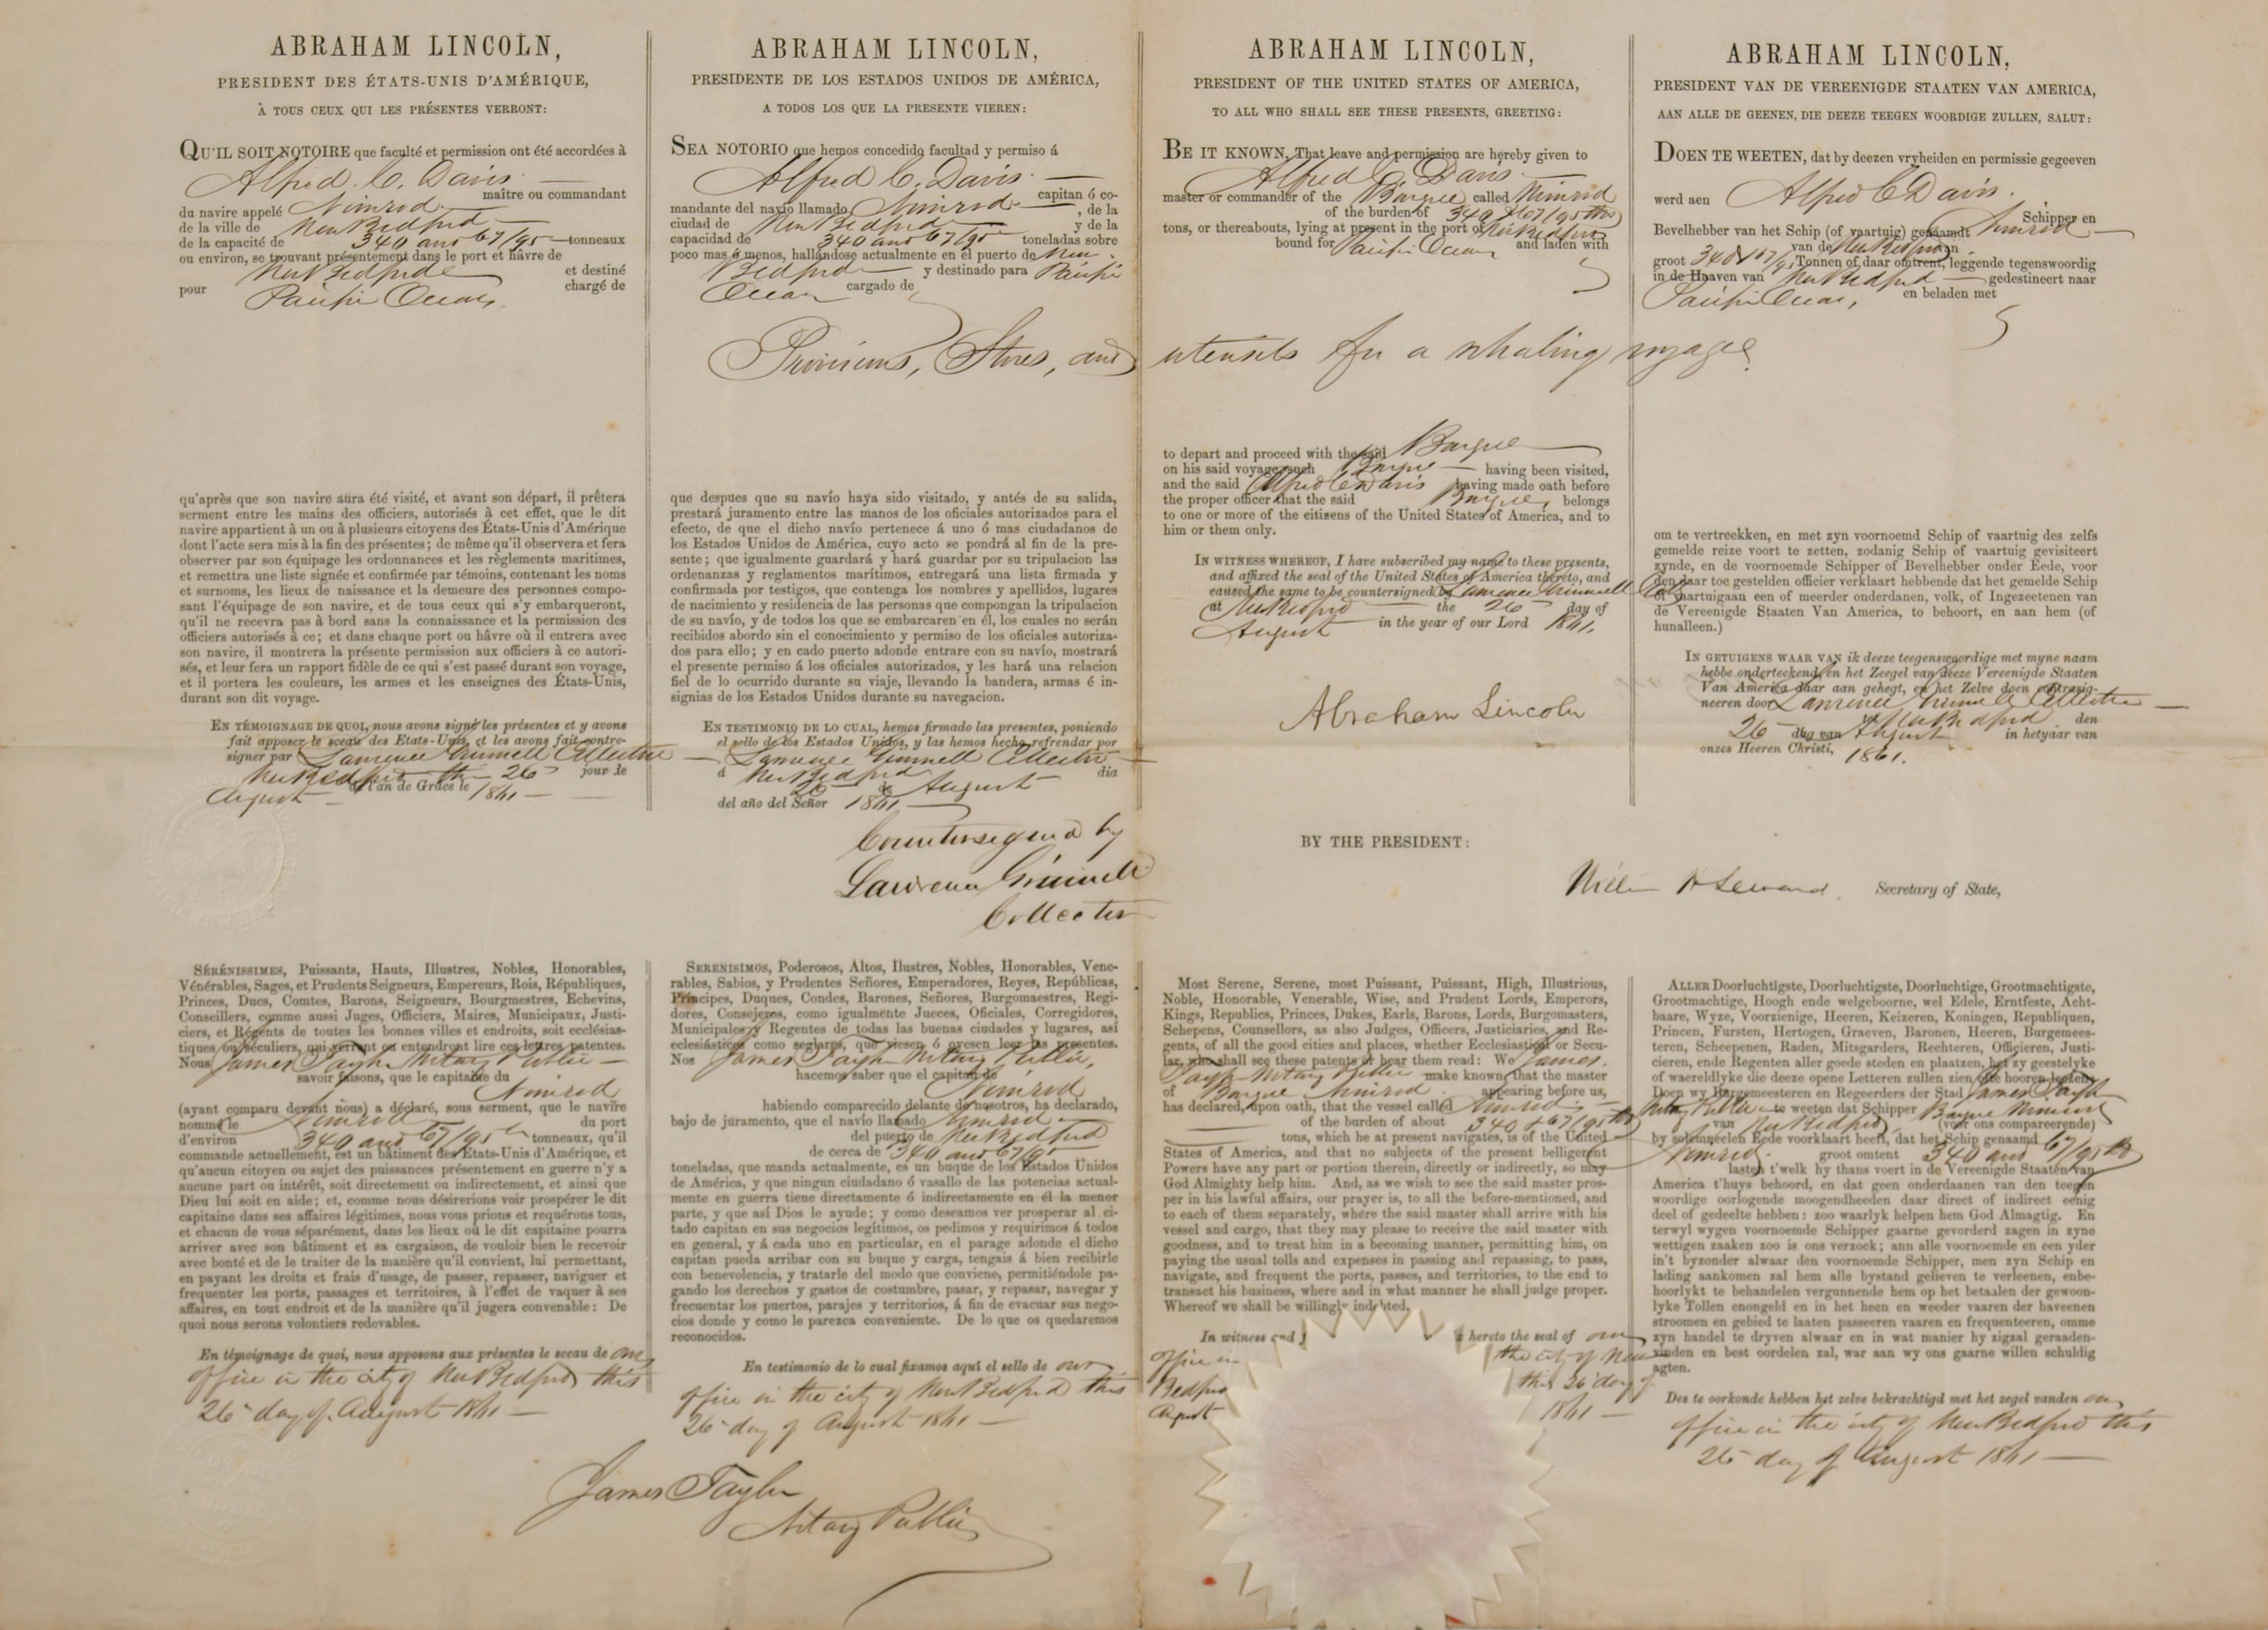 ABRAHAM LINCOLN,
PRESIDENT DES ÉTATS-UNIS D'AMÉRIQUE,
À TOUS CEUX QUI LES PRÉSENTES VERRONT:
QU'IL SOIT NOTOIRE que faculté et permission ont été accordées à
Alfred C. Davis
maître ou commandant
du navire appelé Nimrod
de la ville de New Bedford
de la capacité de 340 and 67/95 tonneaux
ou environ, se trouvant présentement dans le port et hâvre de
New Bedford et destiné
pour Pacific Ocean, chargé de
qu'après que son navire aura été visité, et avant son départ, il prêtera
serment entre les mains des officiers, autorisés à cet effet, que le dit
navire appartient à un ou à plusieurs citoyens des États-Unis d'Amérique
dont l'acte sera mis à la fin des présentes; de même qu'il observera et fera
observer par son équipage les ordonnances et les règlements maritimes,
et remettra une liste signée et confirmée par témoins, contenant les noms
et surnoms, les lieux de naissance et la demeure des personnes compo-
sant l'équipage de son navire, et de tous ceux qui s'y embarqueront,
qu'il ne recevra pas à bord sans la connaissance et la permission des
officiers autorisés à ce; et dans chaque port ou hâvre où il entrera avec
son navire, il montrera la présente permission aux officiers à ce autori-
sés, et leur fera un rapport fidèle de ce qui s'est passé durant son voyage,
et il portera les couleurs, les armes et les enseignes des États-Unis,
durant son dit voyage.
EN TÉMOIGNAGE DE QUOI, nous avons signé les présentes et y avons
fait apposer le sceau des Etats-Unis, et les avons fait contre-
signer par Lawrence Grinnell Collector
New Bedford the 26 jour de
August l'an de Grâce le 1861
ABRAHAM LINCOLN,
PRESIDENTE DE LOS ESTADOS UNIDOS DE AMÉRICA,
A TODOS LOS QUE LA PRESENTE VIEREN:
SEA NOTORIO que hemos concedido facultad y permiso á
Alfred C. Davis capitan ó co-
mandante del navío llamado Nimrod, de la
ciudad de New Bedford y de la
capacidad de 340 and 67/95 toneladas sobre
poco mas ó menos, hallándose actualmente en el puerto de New
Bedford y destinado para Pacific
Ocean cargado de
Provisions, Stores, and utensils for a whaling voyage
que despues que su navío haya sido visitado, y antés de su salida,
prestará juramento entre las manos de los oficiales autorizados para el
efecto, de que el dicho navío pertenece á uno ó mas ciudadanos de
los Estados Unidos de América, cuyo acto se pondrá al fin de la pre-
sente; que igualmente guardará y hará guardar por su tripulacion las
ordenanzas y reglamentos marítimos, entregará una lista firmada y
confirmada por testigos, que contenga los nombres y apellidos, lugares
de nacimiento y residencia de las personas que compongan la tripulacion
de su navío, y de todos los que se embarcaren en él, los cuales no serán
recibidos abordo sin el conocimiento y permiso de los oficiales autoriza-
dos para ello; y en cado puerto adonde entrare con su navío, mostrará
el presente permiso á los oficiales autorizados, y les hará una relacion
fiel de lo ocurrido durante su viaje, llevando la bandera, armas é in-
signias de los Estados Unidos durante su navegacion.
EN TESTIMONIO DE LO CUAL, hemos firmado las presentes, poniendo
el sello de los Estados Unidos, y las hemos hecho refrendar por
Lawrence Grinnell Collector
á New Bedford dia
26 de August
del año del Señor 1861
Countersigned by
Lawrence Grinnell
Collector
ABRAHAM LINCOLN,
PRESIDENT OF THE UNITED STATES OF AMERICA,
TO ALL WHO SHALL SEE THESE PRESENTS, GREETING:
BE IT KNOWN, That leave and permission are hereby given to
Alfred C Davis
master or commander of the Barque called Nimrod
of the burden of 340 & 67/95ths
tons, or thereabouts, lying at present in the port of New Bedford
bound for Pacific Ocean and laden with
to depart and proceed with the said Barque
on his said voyage, such Barque having been visited,
and the said Alfred C Davis having made oath before
the proper officer that the said Barque, belongs
to one or more of the citizens of the United States of America, and to
him or them only.
IN WITNESS WHEREOF, I have subscribed my name to these presents,
and affixed the seal of the United States of America thereto, and
caused the same to be countersigned by Lawrence Grinnell Col
at New Bedford the 26 day of
August in the year of our Lord 1861.
Abraham Lincoln
BY THE PRESIDENT:
William H Seward. Secretary of State,
ABRAHAM LINCOLN,
PRESIDENT VAN DE VEREENIGDE STAATEN VAN AMERICA,
AAN ALLE DE GEENEN, DIE DEEZE TEEGEN WOORDIGE ZULLEN, SALUT:
DOEN TE WEETEN, dat by deezen vryheiden en permissie gegeeven
werd aen Alfred C Davis.
Schipper en
Bevelhebber van het Schip (of vaartuig) genaamdt Nimrod
van de New Bedford van
groot 340 & 67/95 Tonnen of daar omtrent, leggende tegenswoordig
in de Haaven van New Bedford gedestineert naar
Pacific Ocean, en beladen met
om te vertreekken, en met zyn voornoemd Schip of vaartuig des zelfs
gemelde reize voort te zetten, zodanig Schip of vaartuig gevisiteert
zynde, en de voornoemde Schipper of Bevelhebber onder Eede, voor
den daar toe gestelden officier verklaart hebbende dat het gemelde Schip
of vaartuigaan een of meerder onderdanen, volk, of Ingezeetenen van
de Vereenigde Staaten Van America, to behoort, en aan hem (of
hunalleen.)
IN GETUIGENS WAAR VAN ik deeze teegenswoordige met myne naam
hebbe onderteekend, en het Zeegel van deeze Vereenigde Staaten
Van America daar aan gehegt, en het Zelve doen contrasig-
neeren door Lawrence Grinnell Collector
New Bedford den
26 dag van August in hetyaar van
onzes Heeren Christi, 1861.
SÉRÉNISSIMES, Puissants, Hauts, Illustres, Nobles, Honorables,
Vénérables, Sages, et Prudents Seigneurs, Empereurs, Rois, Républiques,
Princes, Ducs, Comtes, Barons, Seigneurs, Bourgmestres, Echevins,
Conseillers, comme aussi Juges, Officiers, Maires, Municipaux, Justi-
ciers, et Régents de toutes les bonnes villes et endroits, soit ecclésias-
tiques ou séculiers, qui verront ou entendront lire ces lettres patentes.
Nous James Taylor Notary Public
savoir faisons, que le capitaine du
Nimrod
(ayant comparu devant nous) a déclaré, sous serment, que le navire
nommé le Nimrod du port
d'environ 340 and 67/95th tonneaux, qu'il
commande actuellement, est un bâtiment des États-Unis d'Amérique, et
qu'aucun citoyen ou sujet des puissances présentement en guerre n'y a
aucune part ou intérêt, soit directement ou indirectement, et ainsi que
Dieu lui soit en aide; et, comme nous désirerions voir prospérer le dit
capitaine dans ses affaires légitimes, nous vous prions et requérons tous,
et chacun de vous séparément, dans les lieux où le dit capitaine pourra
arriver avec son bâtiment et sa cargaison, de vouloir bien le recevoir
avec bonté et de le traiter de la manière qu'il convient, lui permettant,
en payant les droits et frais d'usage, de passer, repasser, naviguer et
frequenter les ports, passages et territoires, à l'effet de vaquer à ses
affaires, en tout endroit et de la manière qu'il jugera convenable: De
quoi nous serons volontiers redevables.
En témoignage de quoi, nous apposons aux présentes le sceau de our
office in the city of New Bedford this
26 day of August 1861
SERENISIMOS, Poderosos, Altos, Ilustres, Nobles, Honorables, Vene-
rables, Sabios, y Prudentes Señores, Emperadores, Reyes, Repúblicas,
Príncipes, Duques, Condes, Barones, Señores, Burgomaestres, Regi-
dores, Consejeros, como igualmente Jueces, Oficiales, Corregidores,
Municipales y Regentes de todas las buenas ciudades y lugares, así
eclesiásticos como seglares, que viesen ó oyesen leer las presentes.
Nos James Taylor Notary Public,
hacemos saber que el capitan de
Nimrod
habiendo comparecido delante de nosotros, ha declarado,
bajo de juramento, que el navío llamado Nimrod
del puerto de New Bedford
de cerca de 340 and 67/95
toneladas, que manda actualmente, es un buque de los Estados Unidos
de América, y que ningun ciudadano ó vasallo de las potencias actual-
mente en guerra tiene directamente ó indirectamente en él la menor
parte, y que así Dios le ayude; y como deseamos ver prosperar al ci-
tado capitan en sus negocios legítimos, os pedimos y requirimos á todos
en general, y á cada uno en particular, en el parage adonde el dicho
capitan pueda arribar con su buque y carga, tengais á bien recibirle
con benevolencia, y tratarle del modo que conviene, permitiéndole pa-
gando los derechos y gastos de costumbre, pasar, y repasar, navegar y
frecuentar los puertos, parajes y territorios, á fin de evacuar sus nego-
cios donde y como le parezca conveniente. De lo que os quedaremos
reconocidos.
En testimonio de lo cual fixamos aquí el sello de our
office in the city of New Bedford this
26 day of August 1861
James Taylor
Notary Public
Most Serene, Serene, most Puissant, Puissant, High, Illustrious,
Noble, Honorable, Venerable, Wise, and Prudent Lords, Emperors,
Kings, Republics, Princes, Dukes, Earls, Barons, Lords, Burgomasters,
Schepens, Counsellors, as also Judges, Officers, Justiciaries, and Re-
gents, of all the good cities and places, whether Ecclesiastical or Secu-
lar, who shall see these patents or hear them read: We James
Taylor Notary Public make known, that the master
of Barque Nimrod appearing before us,
has declared, upon oath, that the vessel called Nimrod
of the burden of about 340 & 67/95ths
tons, which he at present navigates, is of the United
States of America, and that no subjects of the present belligerent
Powers have any part or portion therein, directly or indirectly, so may
God Almighty help him. And, as we wish to see the said master pros-
per in his lawful affairs, our prayer is, to all the before-mentioned, and
to each of them separately, where the said master shall arrive with his
vessel and cargo, that they may please to receive the said master with
goodness, and to treat him in a becoming manner, permitting him, on
paying the usual tolls and expenses in passing and repassing, to pass,
navigate, and frequent the ports, passes, and territories, to the end to
transact his business, where and in what manner he shall judge proper.
Whereof we shall be willingly indebted.
In witness and hereto the seal of our
office in the city of New
Bedford this 26 day of
August 1861
ALLER Doorluchtigste, Doorluchtigste, Doorluchtige, Grootmachtigste,
Grootmachtige, Hoogh ende welgeboorne, wel Edele, Erntfeste, Acht-
baare, Wyze, Voorzienige, Heeren, Keizeren, Koningen, Republiquen,
Princen, Fursten, Hertogen, Graeven, Baronen, Heeren, Burgemees-
teren, Scheepenen, Raden, Mitsgarders, Rechteren, Officieren, Justi-
cieren, ende Regenten aller goede steden en plaatzen, het zy geestelyke
of waereldlyke die deeze opene Letteren zullen zien, ofte hooren leezen:
Doen wy Burgemeesteren en Regeerders der Stad James Taylor
Notary Public te weeten dat Schipper Barque Nimrod
van New Bedford (voor ons compareerende)
by solemneelen Eede voorklaart heeft, dat het Schip genaamd
Nimrod groot omtent 340 and 67/95th
lasten t'welk hy thans voert in de Vereenigde Staaten van
America t'huys behoord, en dat geen onderdaanen van den teegen
woordige oorlogende moogendheeden daar direct of indirect eenig
deel of gedeelte hebben: zoo waarlyk helpen hem God Almagtig. En
terwyl wygen voornoemde Schipper gaarne gevorderd zagen in zyne
wettigen zaaken zoo is ons verzock; ann alle voornoemde en een yder
in't byzonder alwaar den voornoemde Schipper, men zyn Schip en
lading aankomen zal hem alle bystand gelieven te verleenen, enbe-
hoorlykt te behandelen vergunnende hem op het betaalen der gewoon-
lyke Tollen enongeld en in het heen en weeder vaaren der haveenen
stroomen en gebied te laaten passeeren vaaren en frequenteeren, omme
zyn handel te dryven alwaar en in wat manier hy zigzal geraaden-
vinden en best oordelen zal, war aan wy ons gaarne willen schuldig
agten.
Des te oorkonde hebben het zelve bekrachtigd met het zegel vanden our
office in the city of New Bedford this
26 day of August 1861